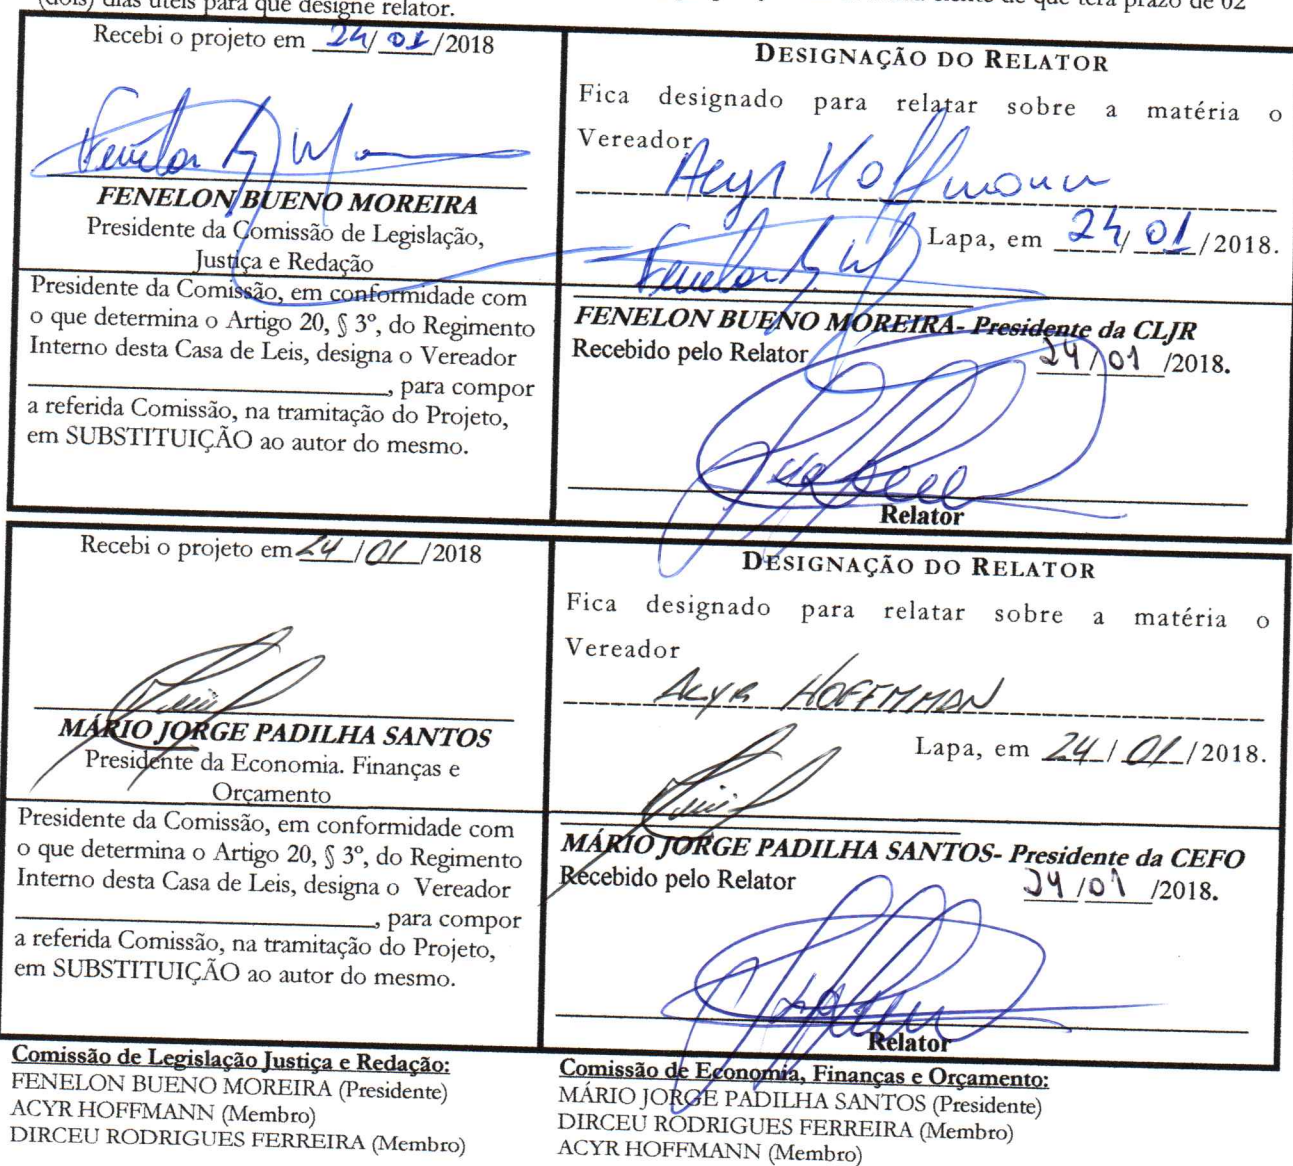 (dois) dias úteis para que designe relator. de que terá prazo de 02
Recebi o projeto em 24/ 01 /2018
FENELON BUENO MOREIRA
Presidente da Comissão de Legislação,
Justiça e Redação
Presidente da Comissão, em conformidade com
o que determina o Artigo 20, § 3º, do Regimento
Interno desta Casa de Leis, designa o Vereador
____________________, para compor
a referida Comissão, na tramitação do Projeto,
em SUBSTITUIÇÃO ao autor do mesmo.
DESIGNAÇÃO DO RELATOR
Fica designado para relatar sobre a matéria o
Vereador
Acyr Hoffmann
Lapa, em 24/ 01 /2018.
FENELON BUENO MOREIRA- Presidente da CLJR
Recebido pelo Relator 24/01 /2018.
Relator
Recebi o projeto em 24 / 01 /2018
MÁRIO JORGE PADILHA SANTOS
Presidente da Economia. Finanças e
Orçamento
Presidente da Comissão, em conformidade com
o que determina o Artigo 20, § 3º, do Regimento
Interno desta Casa de Leis, designa o Vereador
____________________, para compor
a referida Comissão, na tramitação do Projeto,
em SUBSTITUIÇÃO ao autor do mesmo.
DESIGNAÇÃO DO RELATOR
Fica designado para relatar sobre a matéria o
Vereador
ACYR HOFFMMAN
Lapa, em 24 / 01 /2018.
MÁRIO JORGE PADILHA SANTOS- Presidente da CEFO
Recebido pelo Relator 24 /01 /2018.
Relator
Comissão de Legislação Justiça e Redação:
FENELON BUENO MOREIRA (Presidente)
ACYR HOFFMANN (Membro)
DIRCEU RODRIGUES FERREIRA (Membro)
Comissão de Economia, Finanças e Orçamento:
MÁRIO JORGE PADILHA SANTOS (Presidente)
DIRCEU RODRIGUES FERREIRA (Membro)
ACYR HOFFMANN (Membro)